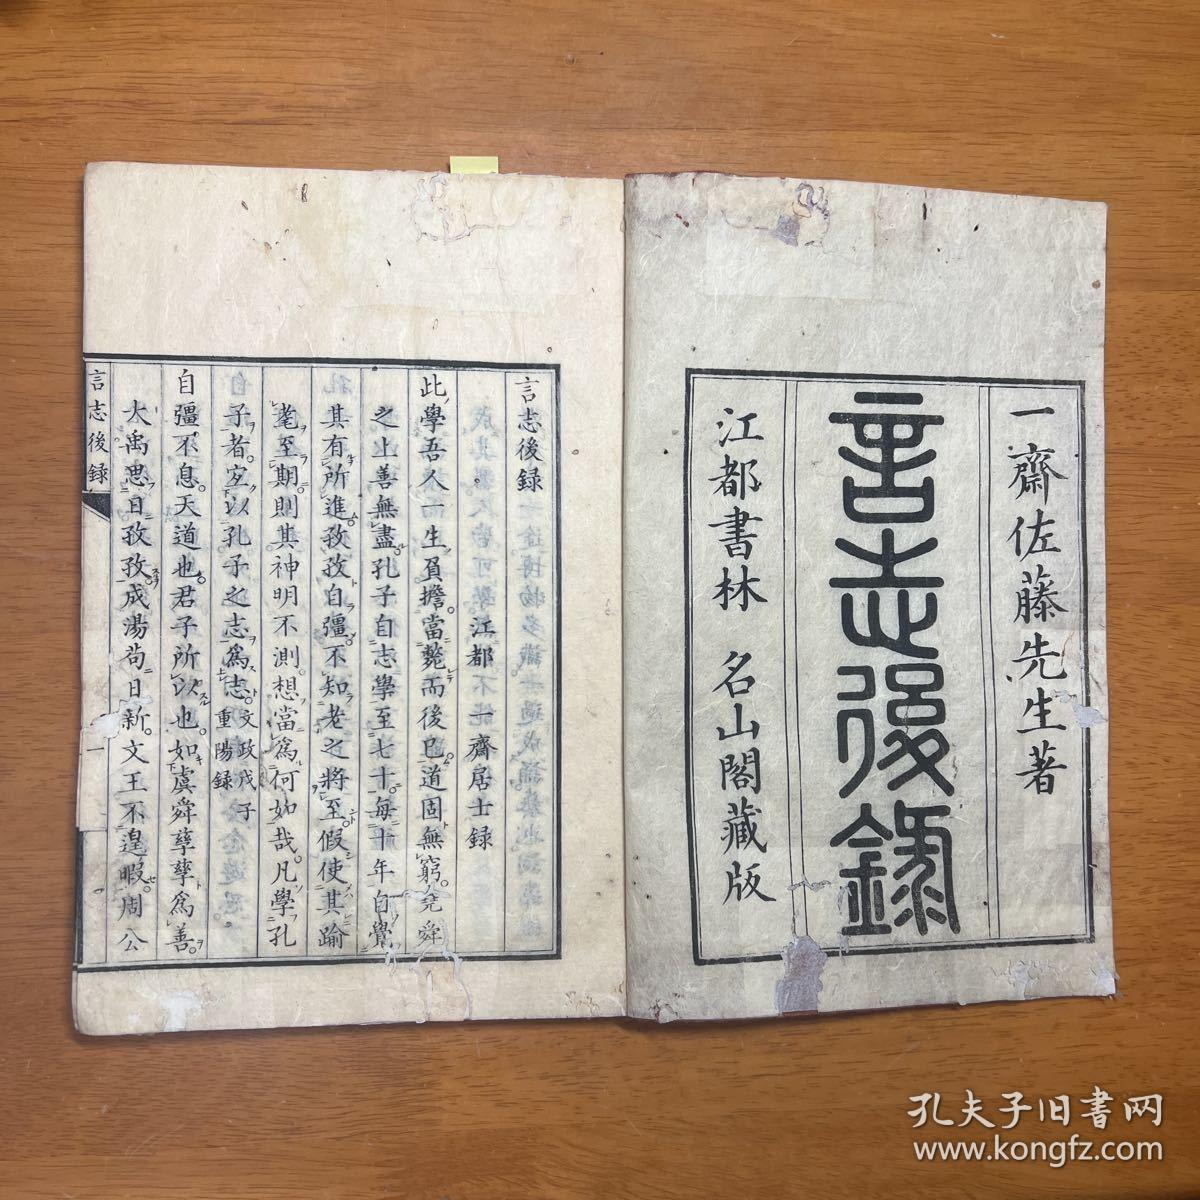 一齋佐藤先生著
言志後録
江都書林 名山閣藏版
言志後録
江都 一齋居士錄
此學吾人一生負擔當斃而後已道固無窮堯舜
之上善無盡孔子自志學至七十每十年自覺
其有所進孜孜自彊不知老之將至假使其踰
耄至期則其神明不測想當爲何如哉凡學孔
子者宜以孔子之志爲志
文政戊子
重陽錄
自彊不息天道也君子所以也如虞舜孳孳爲善
大禹思日孜孜成湯苟日新文王不遑暇周公
言志後録
一
孔夫子旧书网
www.kongfz.com